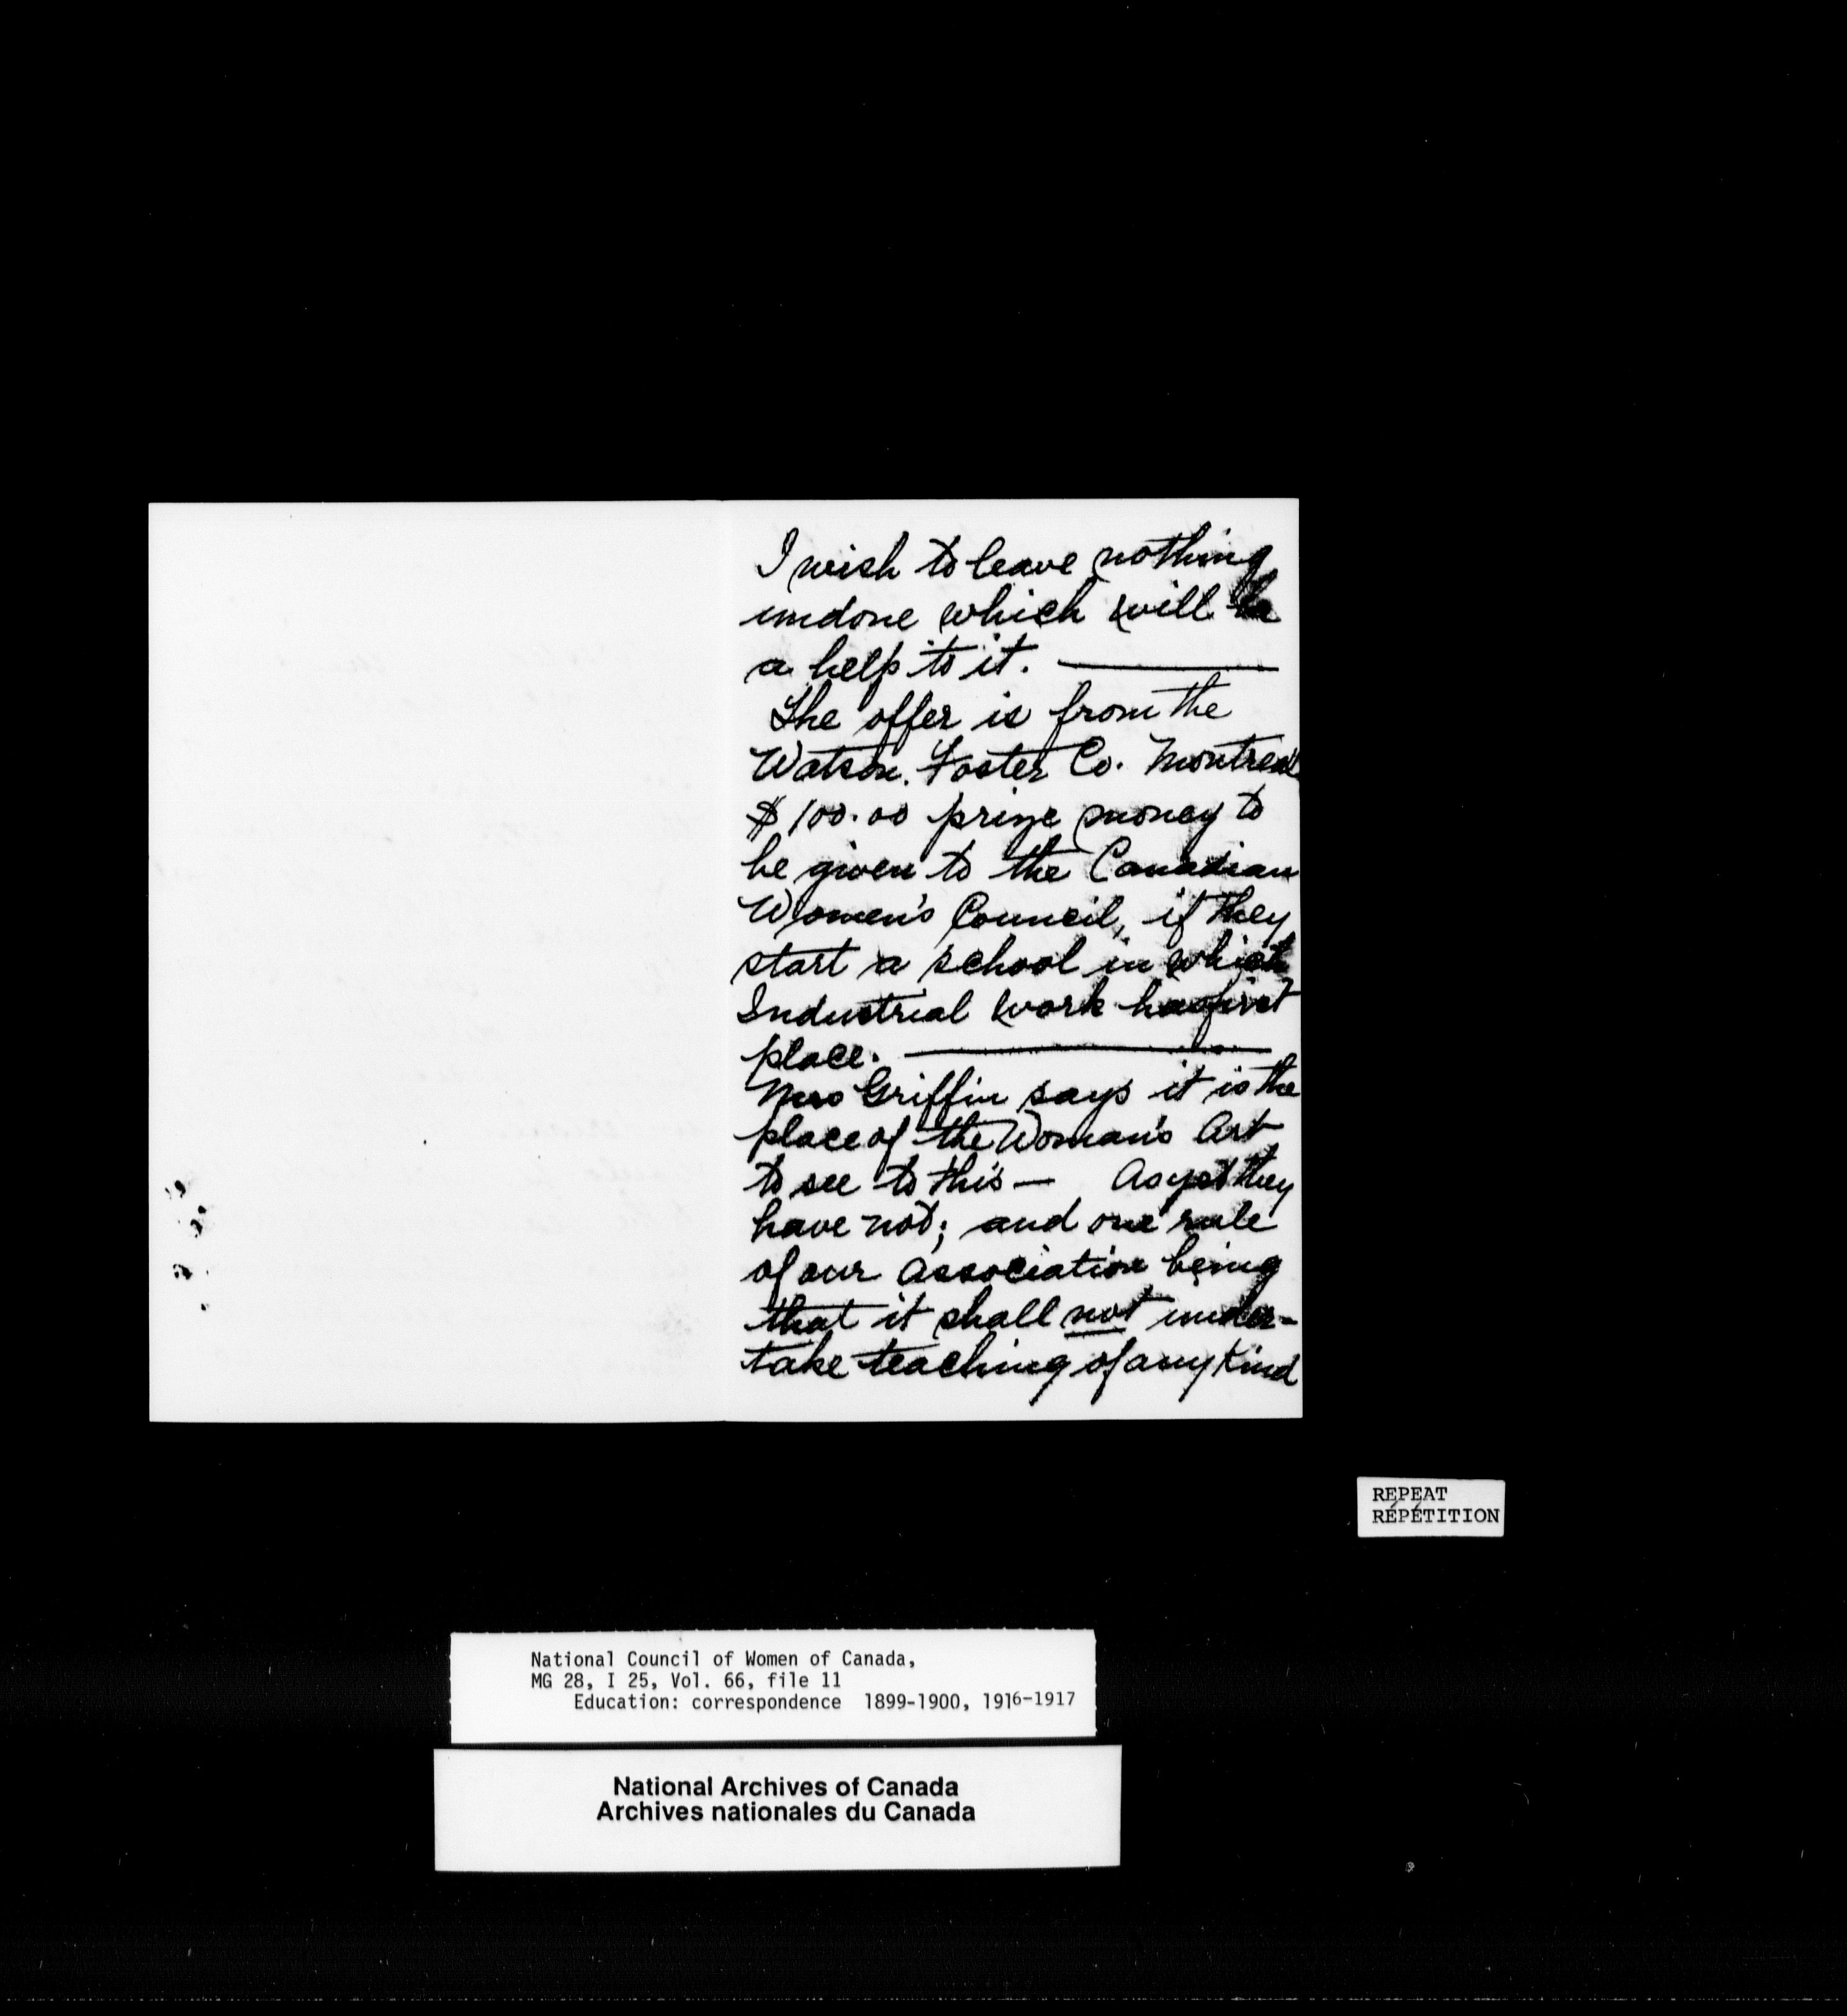 I wish to leave nothing
undone which will be
a help to it. ———
The offer is from the
Watson. Foster Co. Montreal
$100.00 prize money to
be given to the Canadian
Women's Council, if they
start a school in which
Industrial work has first
place. ———
Mrs Griffin says it is the
place of the Woman's Art
to see to this — As yet they
have not; and one rule
of our Association being
that it shall not under-
take teaching of any kind
REPEAT
RÉPÉTITION
National Council of Women of Canada,
MG 28, I 25, Vol. 66, file 11
Education: correspondence 1899-1900, 1916-1917
National Archives of Canada
Archives nationales du Canada